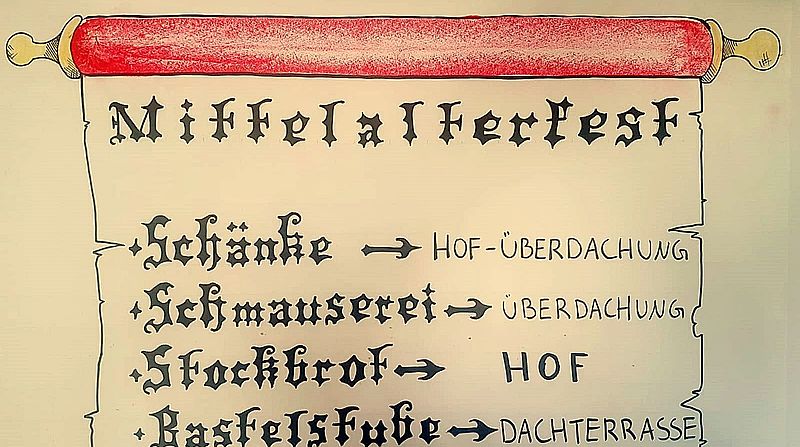 Mittelalterfest
Schänke → HOF-ÜBERDACHUNG
Schmauserei → ÜBERDACHUNG
Stockbrot → HOF
Bastelstube → DACHTERRASSE